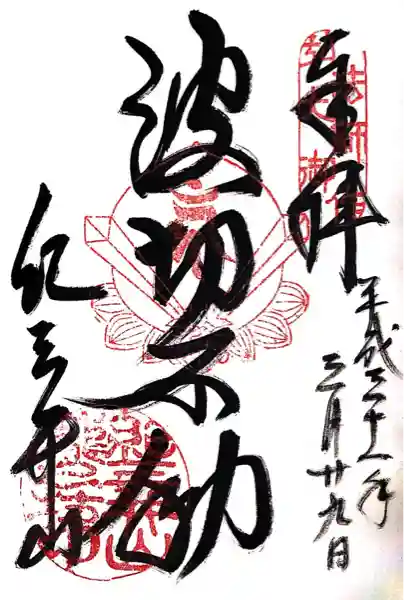 奉拝
平成三十一年
三月廿九日
波切不動
紀三井寺